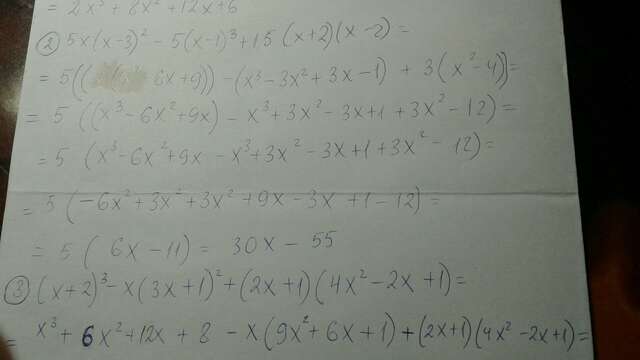 = 2x³ + 8x² + 12x + 6
② 5x(x-3)² - 5(x-1)³ + 15 (x+2)(x-2) =
= 5(( 6x+9)) - (x³ - 3x² + 3x - 1) + 3(x² - 4)) =
= 5 ((x³ - 6x² + 9x) - x³ + 3x² - 3x + 1 + 3x² - 12) =
= 5 (x³ - 6x² + 9x - x³ + 3x² - 3x + 1 + 3x² - 12) =
= 5 (-6x² + 3x² + 3x² + 9x - 3x + 1 - 12) =
= 5 ( 6x - 11) = 30x - 55
③ (x+2)³ - x(3x+1)² + (2x+1)(4x² - 2x + 1) =
= x³ + 6x² + 12x + 8 - x(9x² + 6x + 1) + (2x+1)(4x² - 2x + 1) =